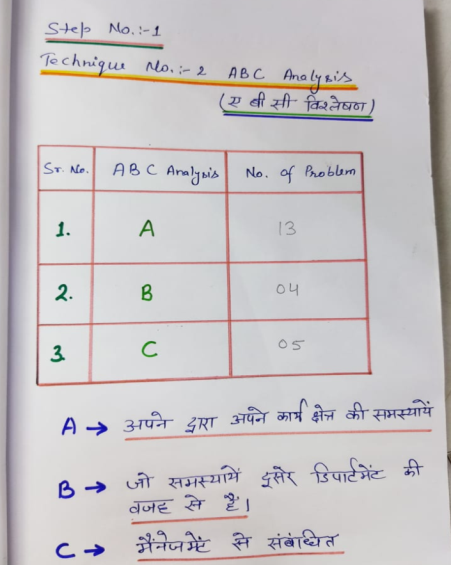 Step No.:-1
Technique No.:- 2 ABC Analysis
(ए बी सी विश्लेषण)
Sr. No. ABC Analysis No. of Problem
1. A 13
2. B 04
3 C 05
A → अपने द्वारा अपने कार्य क्षेत्र की समस्यायें
B → जो समस्यायें दूसरे डिपार्टमेंट की
वजह से हैं।
C → मैंनेजमेंट से संबंधित